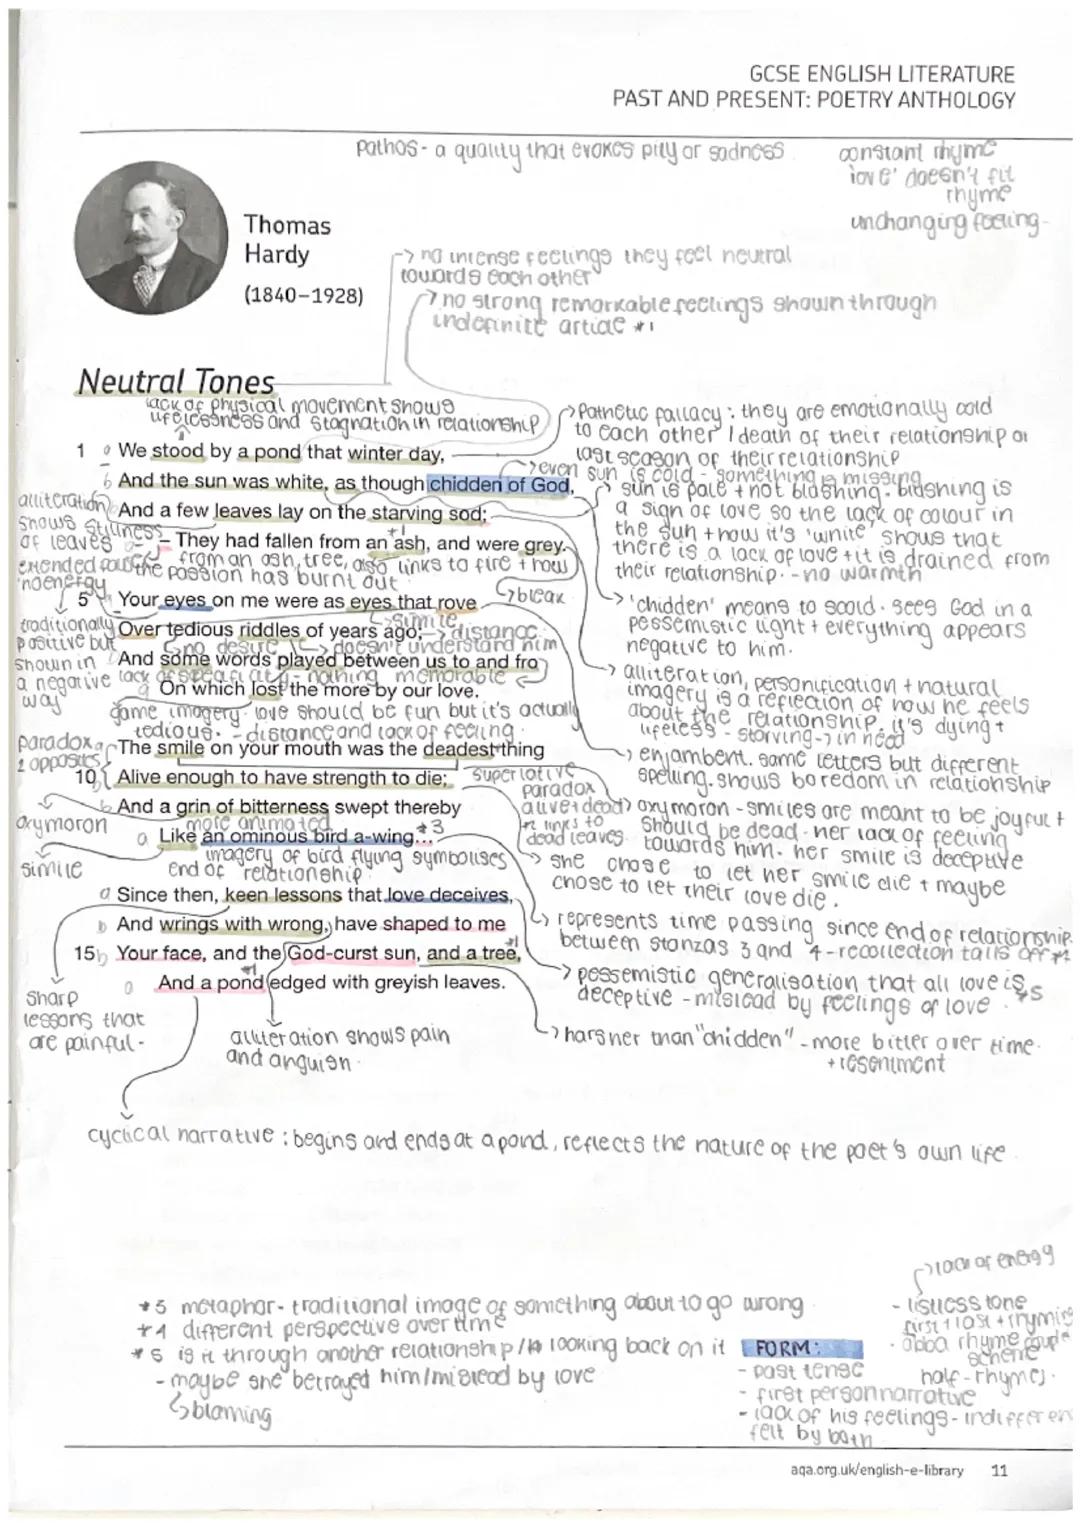 GCSE ENGLISH LITERATURE
PAST AND PRESENT: POETRY ANTHOLOGY
pathos - a quality that evokes pity or sadness
constant rhyme
'love' doesn't fit
rhyme
unchanging feeling -
Thomas
Hardy
(1840–1928)
→ no intense feelings they feel neutral
towards each other
→ no strong remarkable feelings shown through
indefinite article *1
Neutral Tones
lack of physical movement shows
lifelessness and stagnation in relationship
1 a We stood by a pond that winter day,
b And the sun was white, as though chidden of God,
And a few leaves lay on the starving sod;
– They had fallen from an ash, and were grey.
from an ash tree, also links to fire + how
the passion has burnt out
alliteration
shows stillness
of leaves
extended pause
'no energy'
→ bleak
5 Your eyes on me were as eyes that rove
→ simile
Over tedious riddles of years ago; → distance
→ no desire → doesn't understand him
And some words played between us to and fro
lack of specificity - nothing memorable
a On which lost the more by our love.
game imagery. love should be fun but it's actually
tedious. - distance and lack of feeling.
traditionally
positive but
shown in
a negative
way
paradox
2 opposites
a The smile on your mouth was the deadest thing
10 Alive enough to have strength to die;
superlative
paradox
alive + dead
*2 links to
dead leaves
b And a grin of bitterness swept thereby
more animated
a Like an ominous bird a-wing…. *3
imagery of bird flying symbolises
end of relationship
oxymoron
simile
a Since then, keen lessons that love deceives,
b And wrings with wrong, have shaped to me
15 b Your face, and the God-curst sun, and a tree, *1
a And a pond edged with greyish leaves.
*1
sharp
lessons that
are painful -
alliteration shows pain
and anguish.
→ Pathetic fallacy: they are emotionally cold
to each other / death of their relationship or
last season of their relationship
→ even sun is cold - something is missing
→ sun is pale + not blushing. blushing is
a sign of love so the lack of colour in
the sun + how it's 'white' shows that
there is a lack of love + it is drained from
their relationship. - no warmth
→ 'chidden' means to scold. sees God in a
pessemistic light + everything appears
negative to him.
→ alliteration, personification + natural
imagery is a reflection of how he feels
about the relationship. it's dying +
lifeless - starving → in need
→ enjambent. same letters but different
spelling. shows boredom in relationship
→ oxymoron - smiles are meant to be joyful +
should be dead. her lack of feeling
towards him. her smile is deceptive
→ she chose to let her smile die + maybe
chose to let their love die.
→ represents time passing since end of relationship
between stanzas 3 and 4 - recollection tails off
→ pessemistic generalisation that all love is
deceptive - mislead by feelings of love. *5
→ harsher than "chidden" - more bitter over time.
+ resentment
cyclical narrative: begins and ends at a pond, reflects the nature of the poet's own life.
*3 metaphor - traditional image of something about to go wrong
*4 different perspective over time
*5 is it through another relationship / looking back on it
- maybe she betrayed him / mislead by love
→ blaming
FORM:
- past tense
- first person narrative
- lack of his feelings - indifferen
felt by both
→ lack of energy
- listless tone
first + last + rhyming
· abba rhyme
scheme
half-rhymes.
aqa.org.uk/english-e-library 11